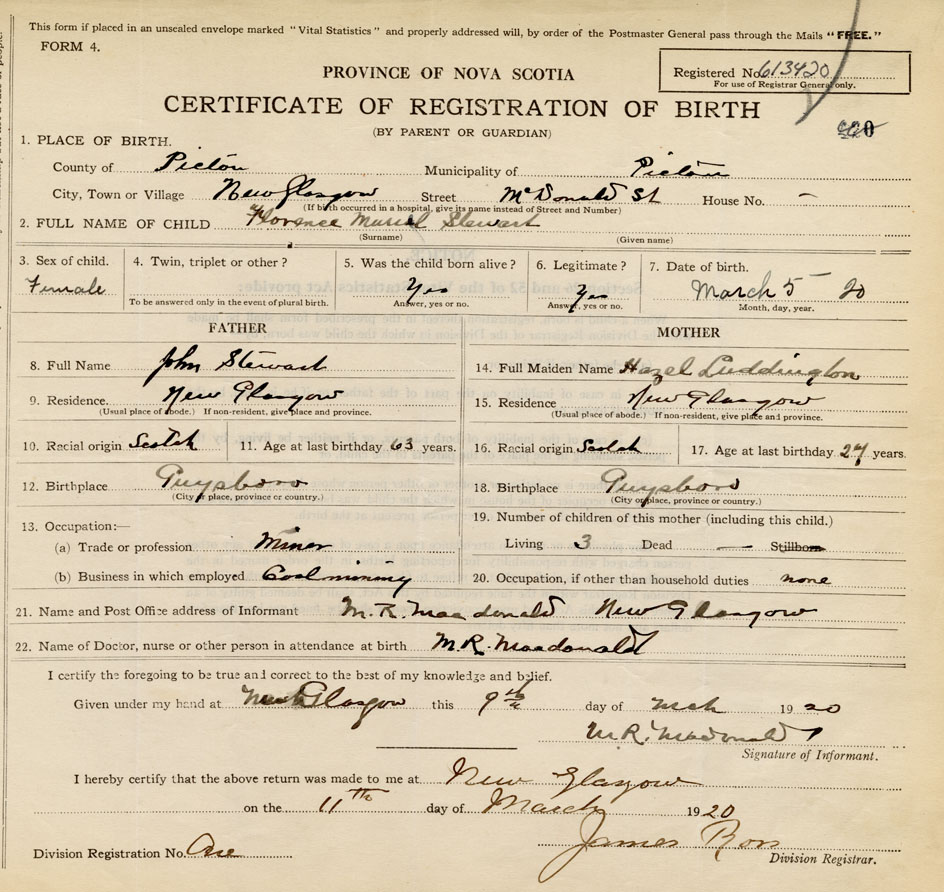 This form if placed in an unsealed envelope marked "Vital Statistics" and properly addressed will, by order of the Postmaster General pass through the Mails "FREE."
FORM 4.
PROVINCE OF NOVA SCOTIA
Registered No. 613420
For use of Registrar General only.
CERTIFICATE OF REGISTRATION OF BIRTH
(BY PARENT OR GUARDIAN)
1. PLACE OF BIRTH.
County of Pictou Municipality of Pictou
City, Town or Village New Glasgow Street McDonald St House No. —
(If birth occurred in a hospital, give its name instead of Street and Number)
2. FULL NAME OF CHILD Florence Muriel Stewart
(Surname) (Given name)
3. Sex of child. 4. Twin, triplet or other? 5. Was the child born alive? 6. Legitimate? 7. Date of birth.
Female Yes Yes March 5 20
To be answered only in the event of plural birth. Answer, yes or no. Answer, yes or no. Month, day, year.
FATHER MOTHER
8. Full Name John Stewart
14. Full Maiden Name Hazel Luddington
9. Residence. New Glasgow
(Usual place of abode.) If non-resident, give place and province.
15. Residence New Glasgow
(Usual place of abode.) If non-resident, give place and province.
10. Racial origin Scotch 11. Age at last birthday 63 years.
16. Racial origin Scotch 17. Age at last birthday 27 years.
12. Birthplace Guysboro
(City or place, province or country.)
18. Birthplace Guysboro
(City or place, province or country.)
13. Occupation:—
(a) Trade or profession Miner
(b) Business in which employed Coal mining
19. Number of children of this mother (including this child.)
Living 3 Dead — Stillborn
20. Occupation, if other than household duties none
21. Name and Post Office address of Informant M. R. Macdonald New Glasgow
22. Name of Doctor, nurse or other person in attendance at birth M. R. Macdonald
I certify the foregoing to be true and correct to the best of my knowledge and belief.
Given under my hand at New Glasgow this 9th day of Mch 1920
M. R. Macdonald
Signature of Informant.
I hereby certify that the above return was made to me at New Glasgow
on the 11th day of March 1920
James Ross
Division Registration No. One Division Registrar.